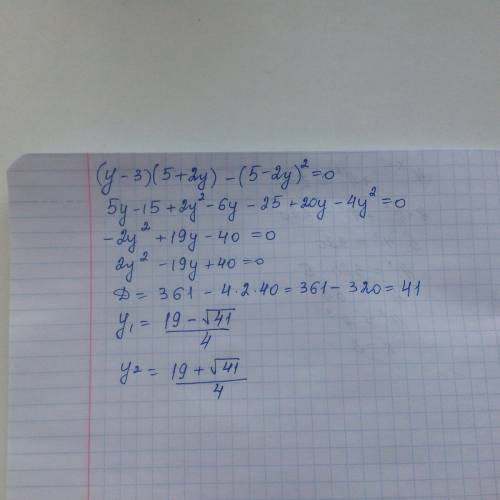 (y-3)(5+2y)-(5-2y)²=0
5y-15+2y²-6y-25+20y-4y²=0
-2y²+19y-40=0
2y²-19y+40=0
D=361-4·2·40=361-320=41
y₁=(19-√41)/4
y₂=(19+√41)/4